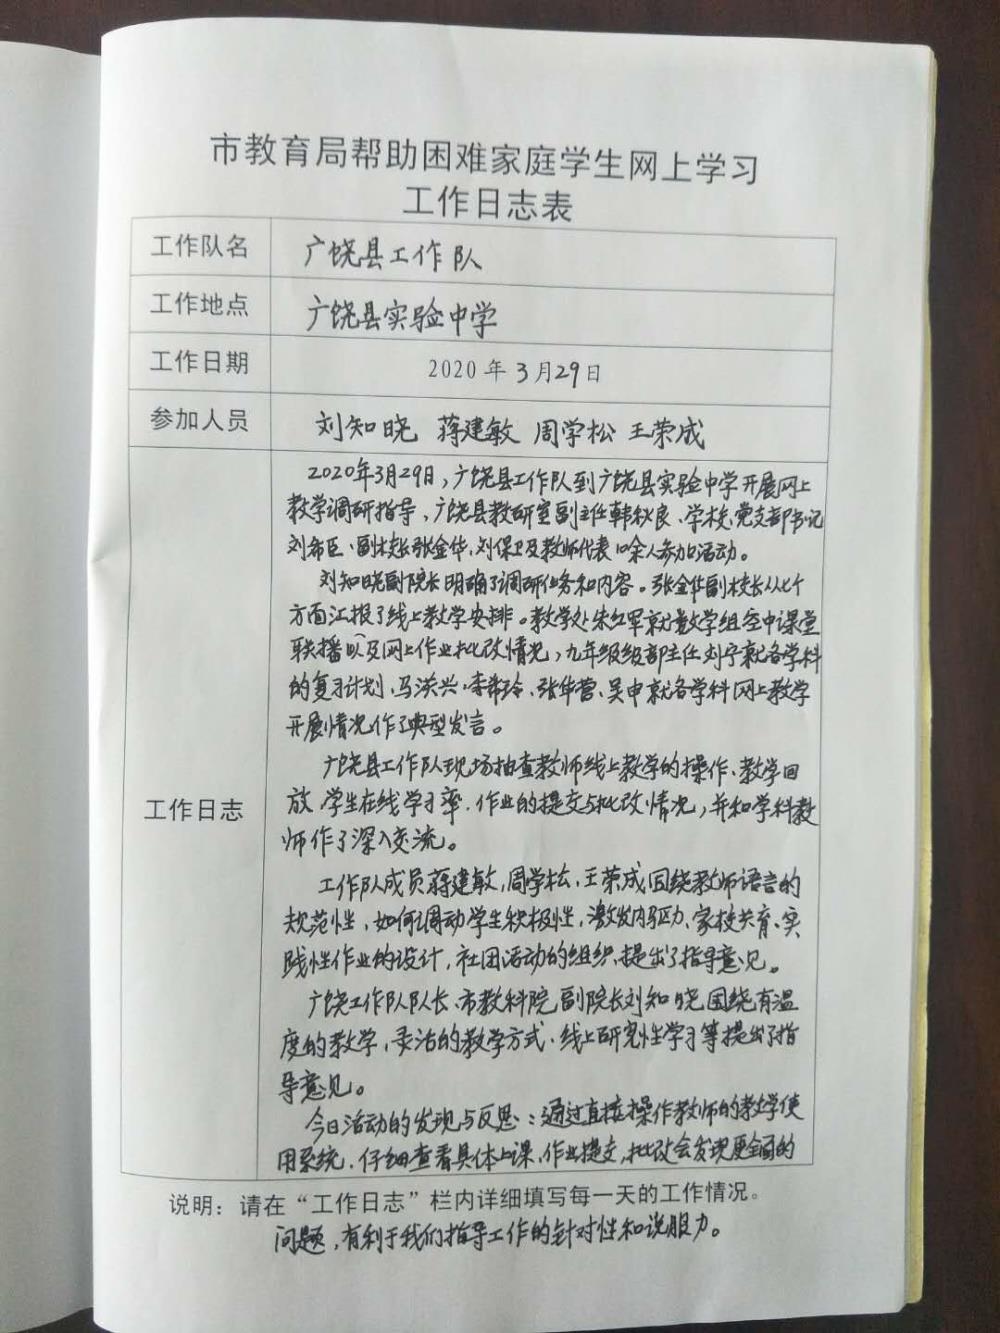 市教育局帮助困难家庭学生网上学习
工作日志表
工作队名 广饶县工作队
工作地点 广饶县实验中学
工作日期 2020年3月29日
参加人员 刘知晓 蒋建敏 周学松 王荣成
工作日志
2020年3月29日，广饶县工作队到广饶县实验中学开展网上
教学调研指导，广饶县教研室副主任韩秋良、学校党支部书记
刘希臣、副校长张金华、刘保卫及教师代表10余人参加活动。
刘知晓副院长明确了调研任务和内容。张金华副校长从七个
方面汇报了线上教学安排。教学处朱红军就数学组空中课堂
联播以及网上作业批改情况，九年级级部主任刘宁就各学科
的复习计划，马洪兴、李希玲、张华营、吴申就各学科网上教学
开展情况作了典型发言。
广饶县工作队现场抽查教师线上教学的操作、教学回
放、学生在线学习率、作业的提交与批改情况，并和学科教
师作了深入交流。
工作队成员蒋建敏，周学松、王荣成围绕教师语言的
规范性，如何调动学生积极性，激发内驱力、家校共育、实
践性作业的设计，社团活动的组织，提出了指导意见。
广饶工作队队长、市教科院副院长刘知晓围绕有温
度的教学，灵活的教学方式、线上研究性学习等提出了指
导意见。
今日活动的发现与反思：通过直接操作教师的教学使
用系统，仔细查看具体上课、作业提交，批改会发现更全面的
说明：请在“工作日志”栏内详细填写每一天的工作情况。
问题，有利于我们指导工作的针对性和说服力。